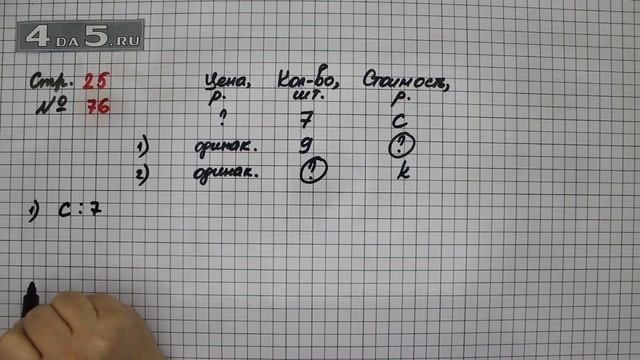 4 DA 5.RU
Стр. 25
№ 76
Цена, Кол-во, Стоимость,
р. шт. р.
? 7 С
1) одинак. 9 ?
2) одинак. ? k
1) С : 7